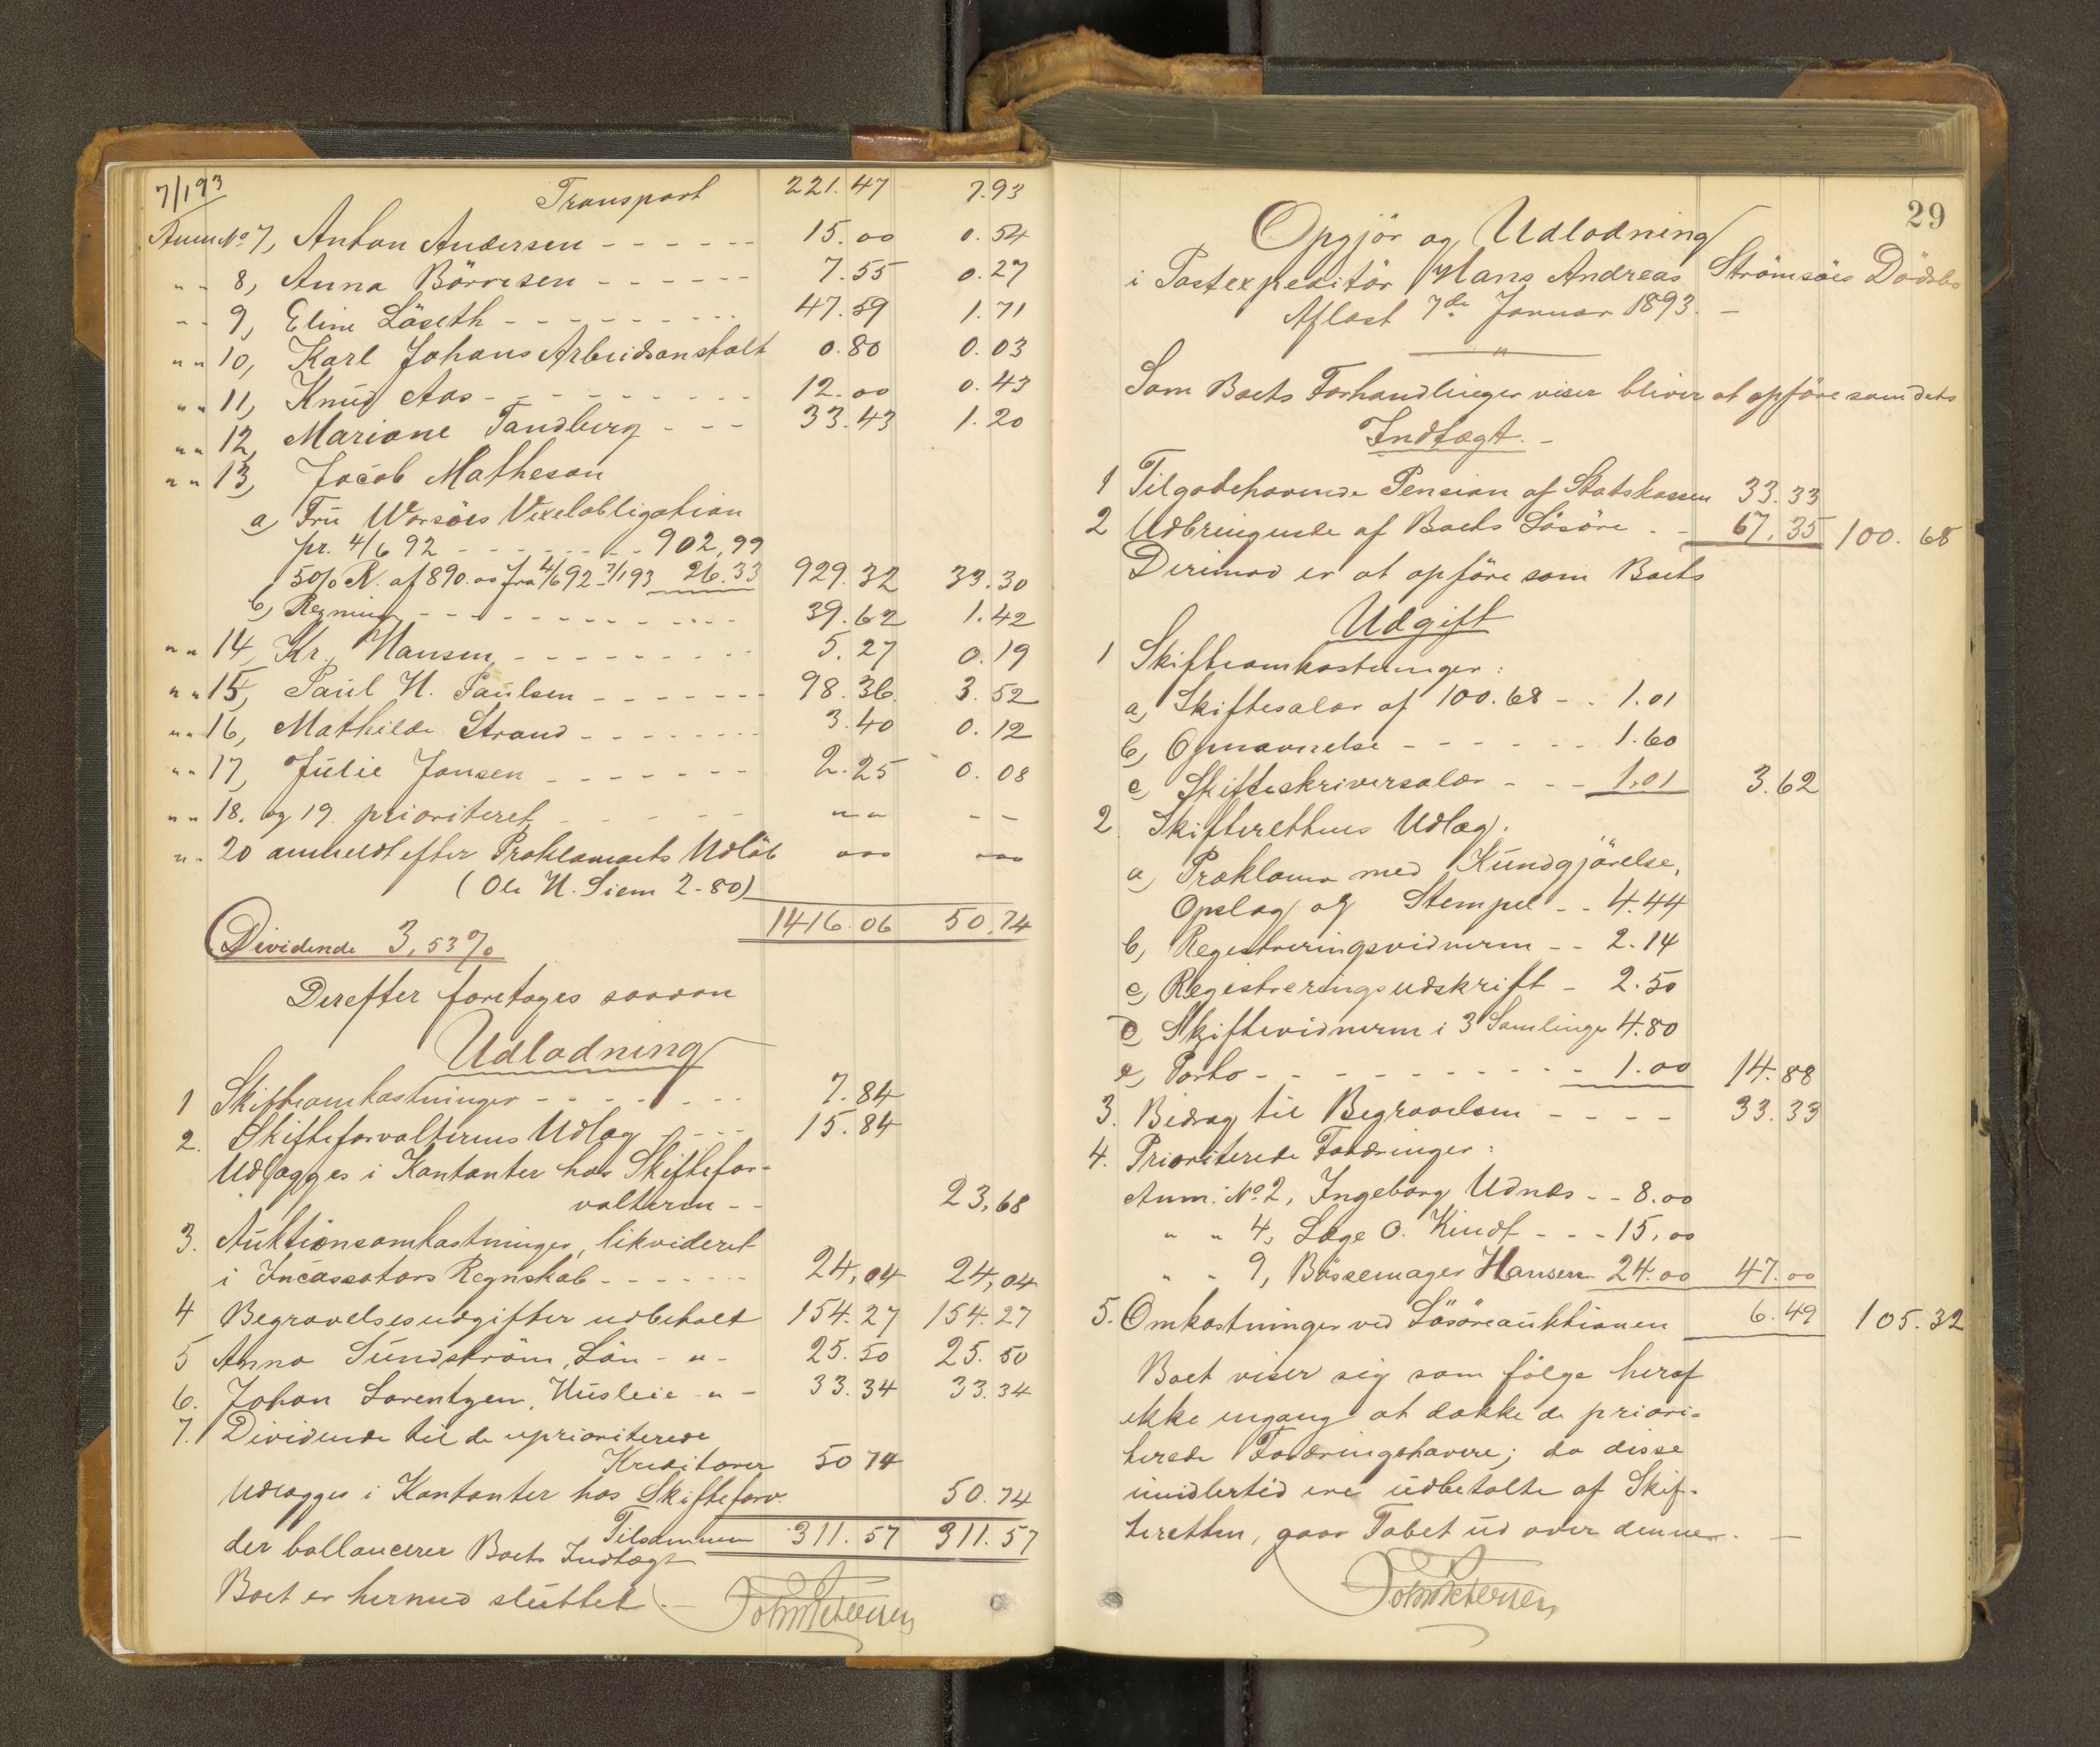 7/1 93
Transport 221.47 7.93
Anm No 7, Anton Andersen - - - - - - 15.00 0.54
" " 8, Anna Börresen - - - - - - 7.55 0.27
" " 9, Eline Löseth - - - - - - - - - 47.59 1.71
" " 10, Karl Johans Arbeidsanstalt 0.80 0.03
" " 11, Knud Aas - - - - - - - - - - 12.00 0.43
" " 12, Mariane Tandberg - - - 33.43 1.20
" " 13, Jacob Matheson
a, Fru Worsöes Vexelobligation
pr. 4/6 92 - - - - - - - - 902,99
5% R. af 890.00 fra 4/6 92 - 7/1 93 26.33 929.32 33.30
b, Regning - - - - - - - - - - - - 39.62 1.42
" " 14, Kr. Hansen - - - - - - - - - 5.27 0.19
" " 15, Paul H. Paulsen - - - - - - - 98.36 3.52
" " 16, Mathilde Strand - - - - - - - - 3.40 0.12
" " 17, Julie Jansen - - - - - - - 2.25 0.08
" " 18. og 19. prioriteret - - - - - - " " - -
" " 20 anmeldt efter Proklamaets Udløb
(Ole H. Siem 2-80)
1416.06 50.74
Dividende 3,53%
Derefter foretages saadan
Udlodning
1 Skifteomkostninger - - - - - - - - 7.84
2. Skifteforvalterens Udlæg - - - - 15.84
Udlægges i Kontanter hos Skiftefor-
valteren - - 23,68
3. Auktionsomkostninger, likvideret
i Incassators Regnskab - - - - - - - 24,04 24,04
4 Begravelsesudgifter udbetalt 154.27 154.27
5 Anna Sundström, Lön - " - 25.50 25.50
6. Johan Lorentzen, Husleie - " - 33.34 33.34
7. Dividende til de uprioriterede
Kreditorer 50 74
Udlægges i Kontanter hos Skifteforv. 50.74
Tilsammen 311.57 311.57
der ballancerer Boets Indtægt
Boet er hermed sluttet. -
29
Opgjör og Udlodning
i Postexpeditör Hans Andreas Strömsöes Dödsbo
Aflæst 7de Januar 1893. -
"
Som Boets Forhandlinger viser bliver at opföre som dets
Indtægt. -
1 Tilgodehavende Pension af Statskassen 33.33
2 Udbringende af Boets Lösöre - - 67,35 100.68
Derimod er at opföre som Boets
Udgift
1 Skifteomkostninger:
a, Skiftesalær af 100.68 - - 1.01
b, Opnævnelse - - - - - - 1.60
c, Skifteskriversalær - - - 1.01 3.62
2. Skifterettens Udlæg:
a, Proklama med Kundgjörelse,
Opslag og Stempel - - 4.44
b, Registreringsvidnerne - - 2.14
c, Registreringsudskrift - 2.50
d, Skiftevidnerne i 3 Samlinger 4.80
e, Porto - - - - - - - - - - 1.00 14.88
3. Bidrag til Begravelsen - - - - 33.33
4. Prioriterede Fordringer:
Anm: No 2, Ingeborg Udnes - - 8.00
" " 4, Lage O. Kindt - - - 15,00
" " 9, Bössemager Hansen 24.00 47.00
5. Omkostninger ved Lösöreauktionen 6.49 105.32
Boet viser sig som fölge heraf
ikke engang at dække de priori-
terede Fordringshavere; da disse
imidlertid ere udbetalte af Skif-
teretten, gaar Tabet ud over denne. -